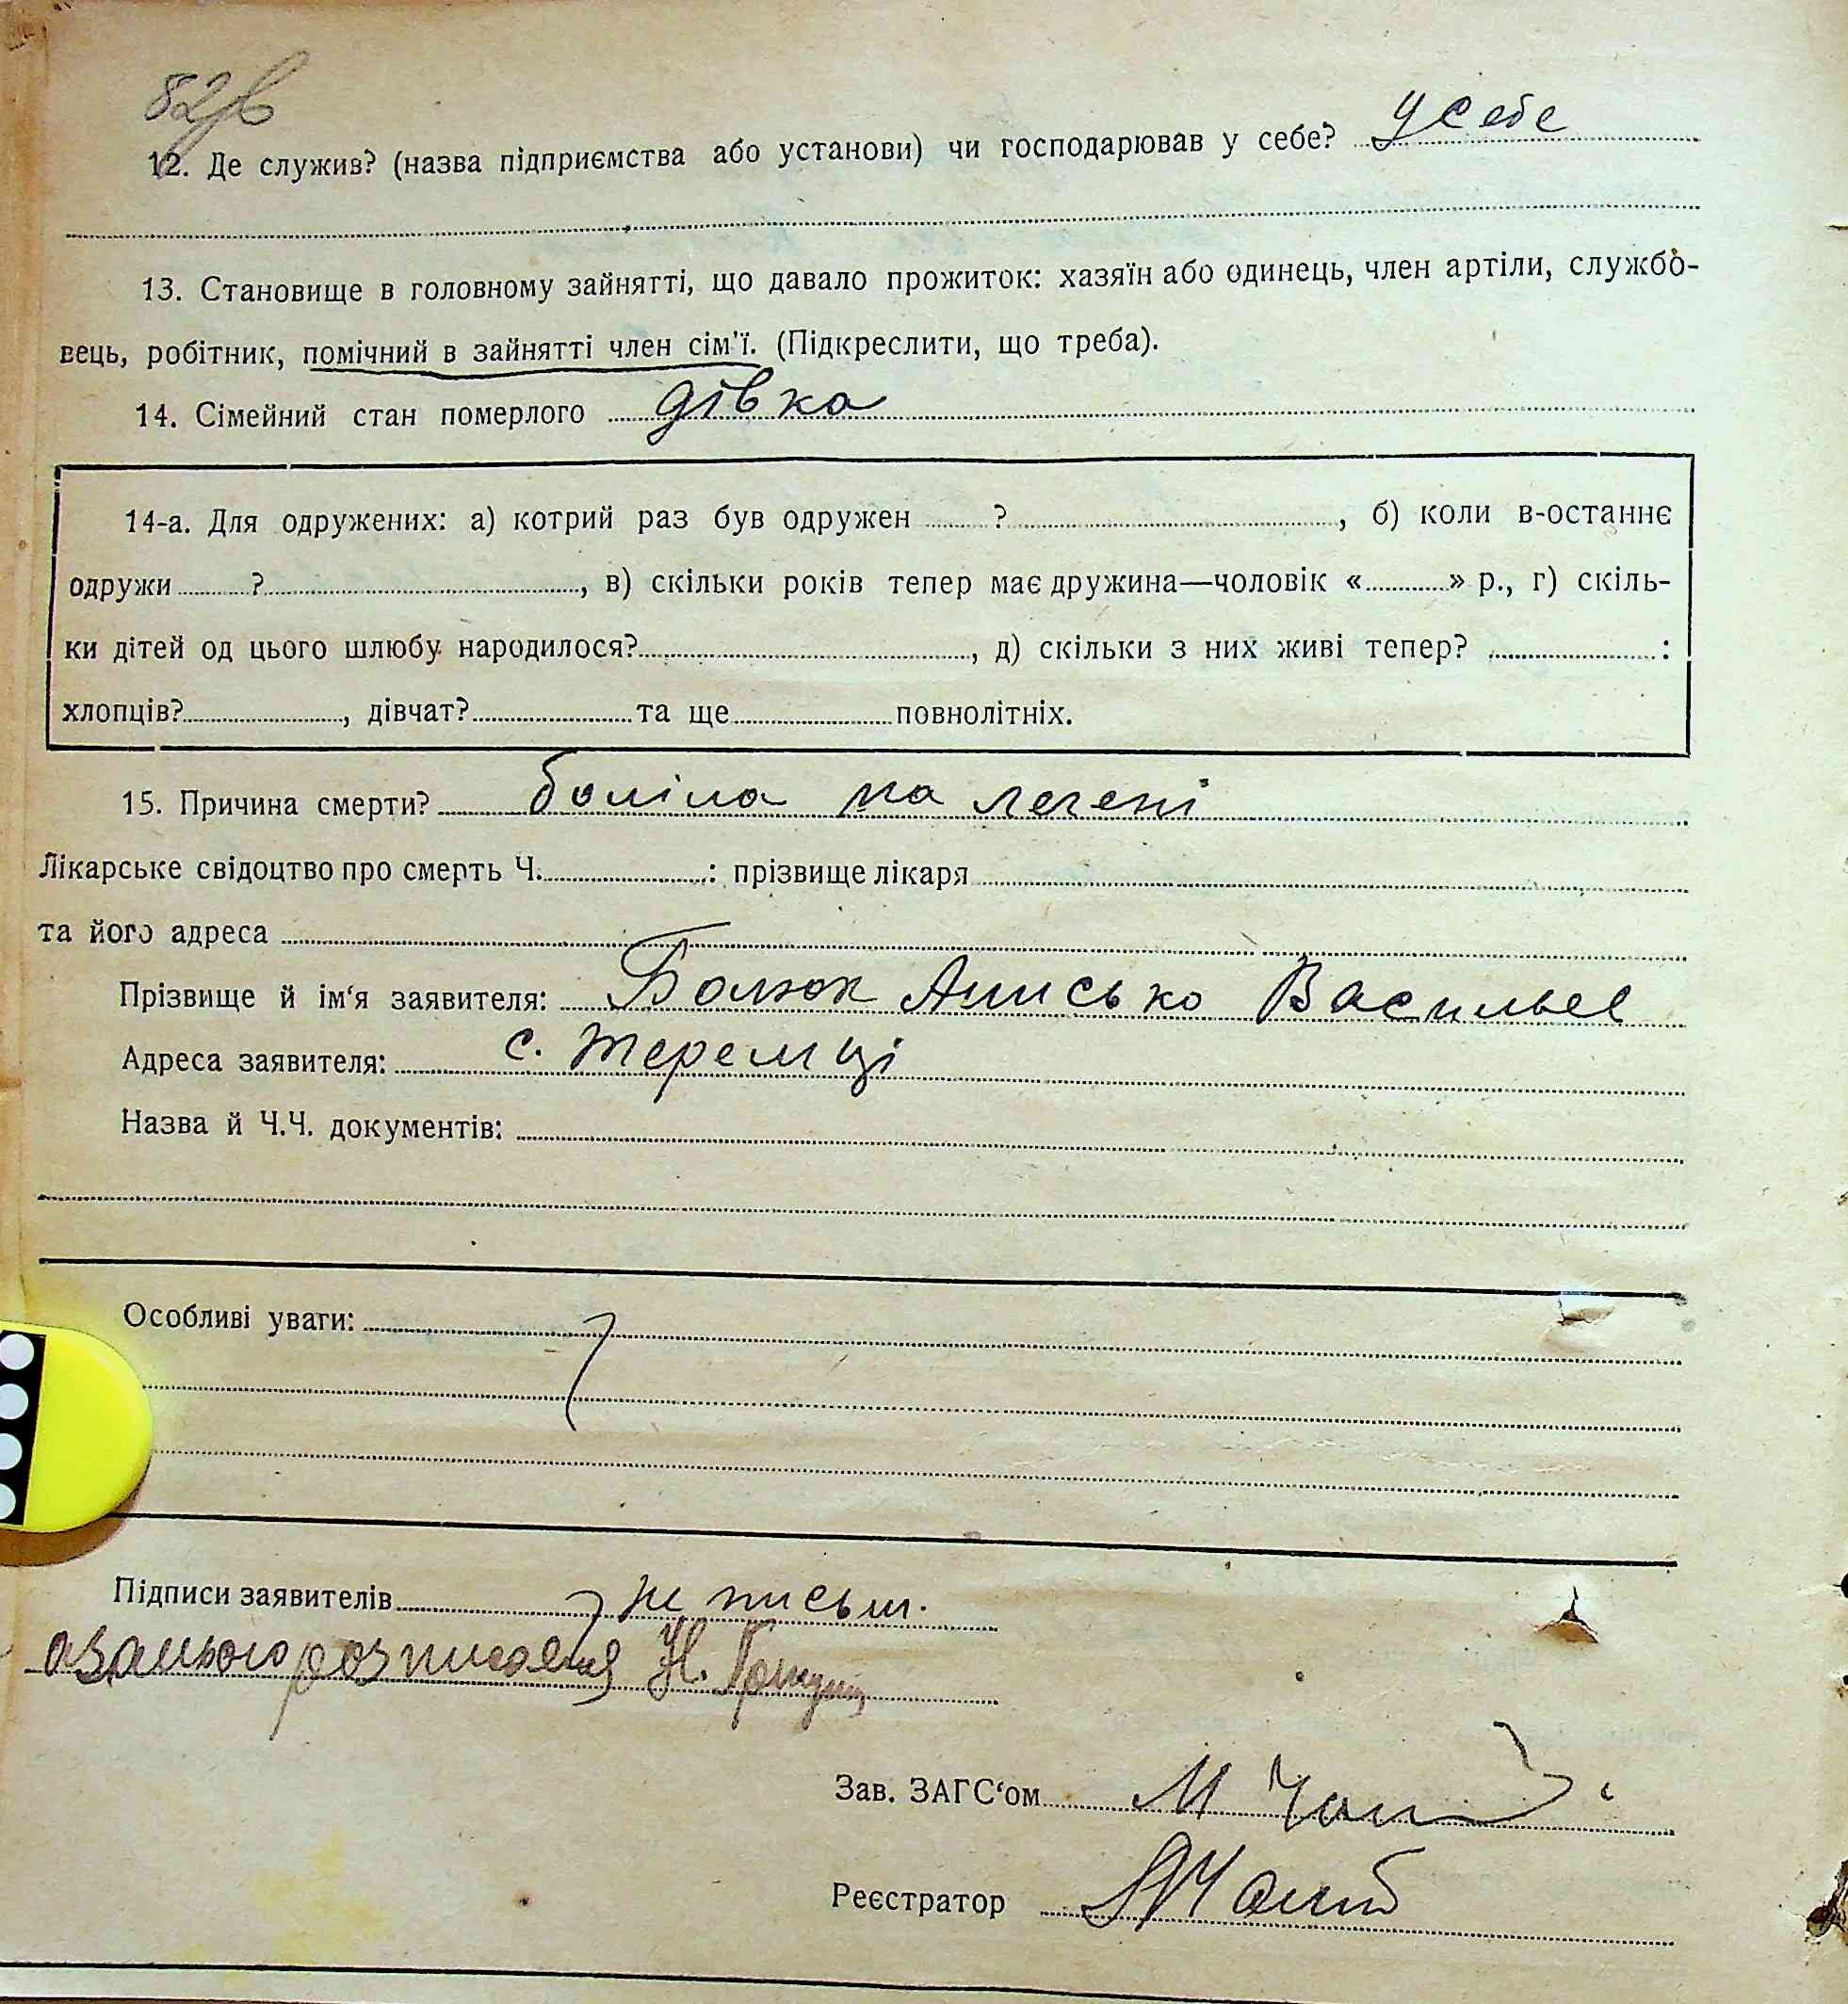 82
12. Де служив? (назва підприємства або установи) чи господарював у себе? у себе
13. Становище в головному зайнятті, що давало прожиток: хазяїн або одинець, член артіли, службо-
вець, робітник, помічний в зайнятті член сім'ї. (Підкреслити, що треба).
14. Сімейний стан померлого дівка
14-а. Для одружених: а) котрий раз був одружен ?, б) коли в-останнє
одружи ?, в) скільки років тепер має дружина—чоловік « » р., г) скіль-
ки дітей од цього шлюбу народилося?, д) скільки з них живі тепер? :
хлопців?, дівчат? та ще повнолітніх.
15. Причина смерти? боліла на легені
Лікарське свідоцтво про смерть Ч. : прізвище лікаря
та його адреса
Прізвище й ім'я заявителя: Анисько Васильев
Адреса заявителя: с. Теремці
Назва й Ч.Ч. документів:
Особливі уваги:
Підписи заявителів не письм.
а за нього розписався Н.
Зав. ЗАГС'ом М
Реєстратор